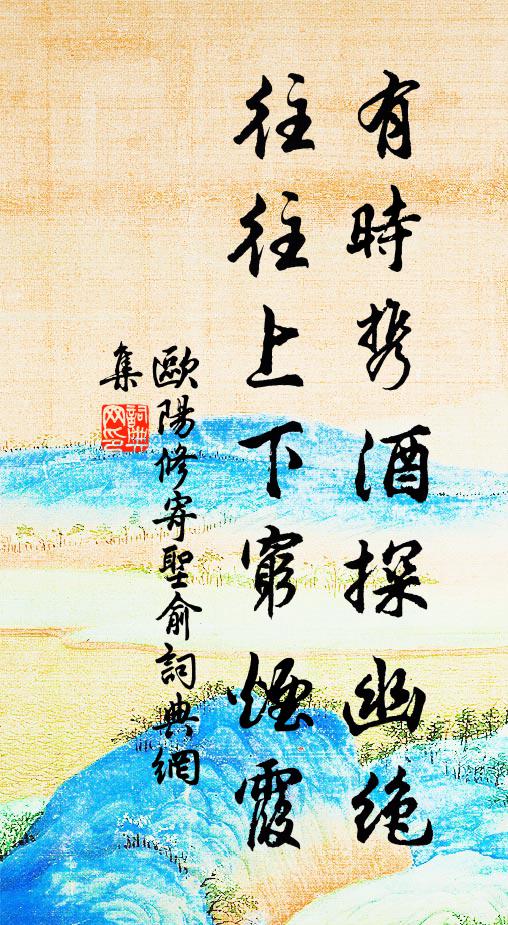 有時携酒探幽絶
往往上下窮煙霞
歐陽修寄聖俞詞典網
集
詞典網印